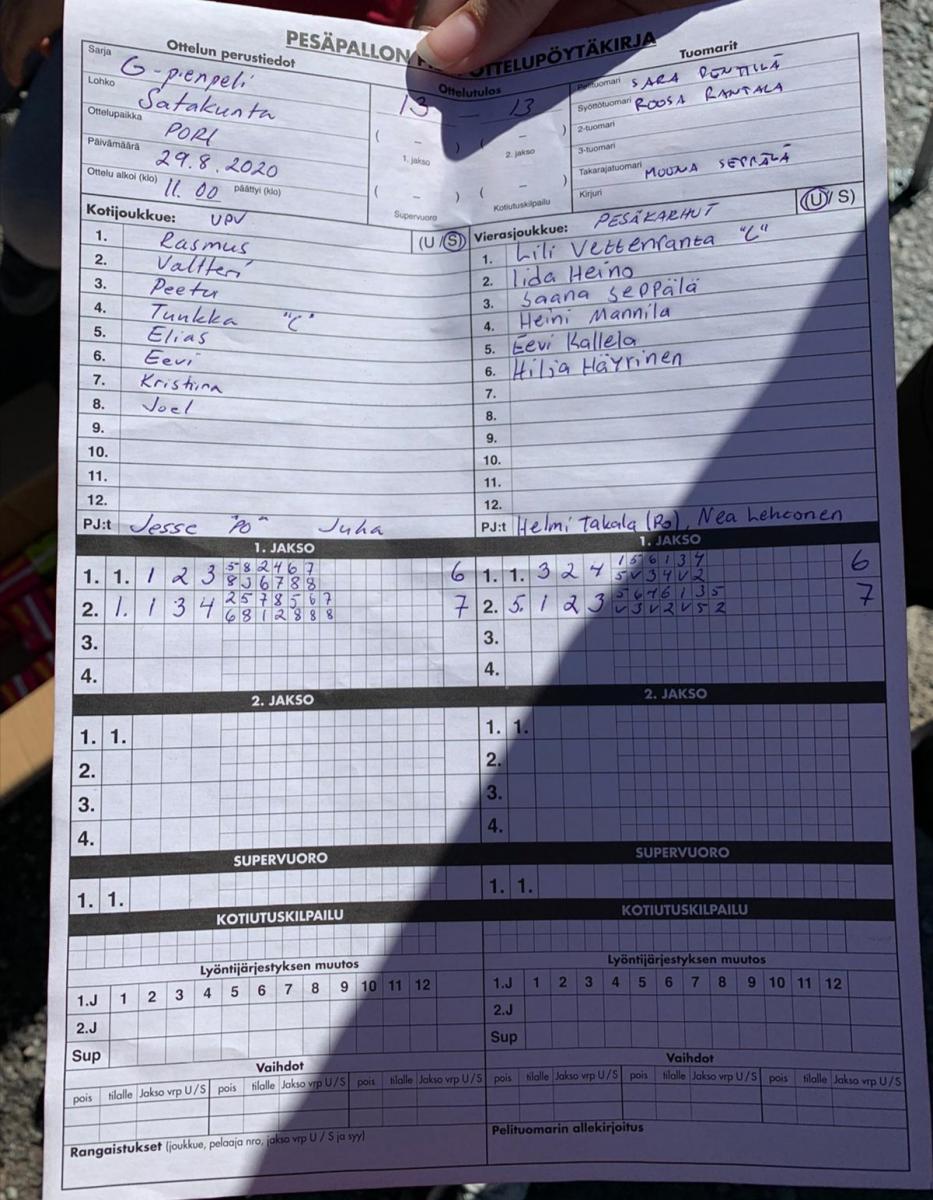 PESÄPALLON OTTELUPÖYTÄKIRJA
Ottelun perustiedot
Sarja G-pienpeli
Lohko Satakunta
Ottelupaikka PORI
Päivämäärä 29.8.2020
Ottelu alkoi (klo) 11.00 päättyi (klo)
Ottelutulos
13 – 13
( – ) ( – )
1. jakso 2. jakso
( – ) ( – )
Supervuoro Kotiutuskilpailu
Tuomarit
Pelituomari SARA PENTTILÄ
Syöttötuomari ROOSA RANTALA
2-tuomari
3-tuomari
Takarajatuomari MOONA SEPPÄLÄ
Kirjuri
Kotijoukkue: UPV (U / S)
1. Rasmus
2. Valtteri
3. Peetu
4. Tuukka "C"
5. Elias
6. Eevi
7. Kristiina
8. Joel
9.
10.
11.
12.
PJ:t Jesse "PO" Juha
Vierasjoukkue: PESÄKARHUT (U / S)
1. Lili Vettenranta "C"
2. Iida Heino
3. Saana Seppälä
4. Heini Mannila
5. Eevi Kallela
6. Hilja Häyrinen
7.
8.
9.
10.
11.
12.
PJ:t Helmi Takala (Po), Nea Lehtonen
1. JAKSO
1. 1. 1 2 3 5 8 2 4 6 7 6
8 3 6 7 8 8
2. 1. 1 3 4 2 5 7 8 5 6 7 7
6 8 1 2 8 8 8
3.
4.
1. JAKSO
1. 1. 3 2 4 1 5 6 1 3 4 6
5 V 3 4 V 2
2. 5. 1 2 3 5 6 4 6 1 3 5 7
V 3 V 2 V 5 2
3.
4.
2. JAKSO
1. 1.
2.
3.
4.
2. JAKSO
1. 1.
2.
3.
4.
SUPERVUORO
1. 1.
SUPERVUORO
1. 1.
KOTIUTUSKILPAILU
KOTIUTUSKILPAILU
Lyöntijärjestyksen muutos
1.J 1 2 3 4 5 6 7 8 9 10 11 12
2.J
Sup
Lyöntijärjestyksen muutos
1.J 1 2 3 4 5 6 7 8 9 10 11 12
2.J
Sup
Vaihdot
pois tilalle Jakso vrp U / S pois tilalle Jakso vrp U / S pois tilalle Jakso vrp U / S
Vaihdot
pois tilalle Jakso vrp U / S pois tilalle Jakso vrp U / S pois tilalle Jakso vrp U / S
Rangaistukset (joukkue, pelaaja nro, jakso vrp U / S ja syy)
Pelituomarin allekirjoitus